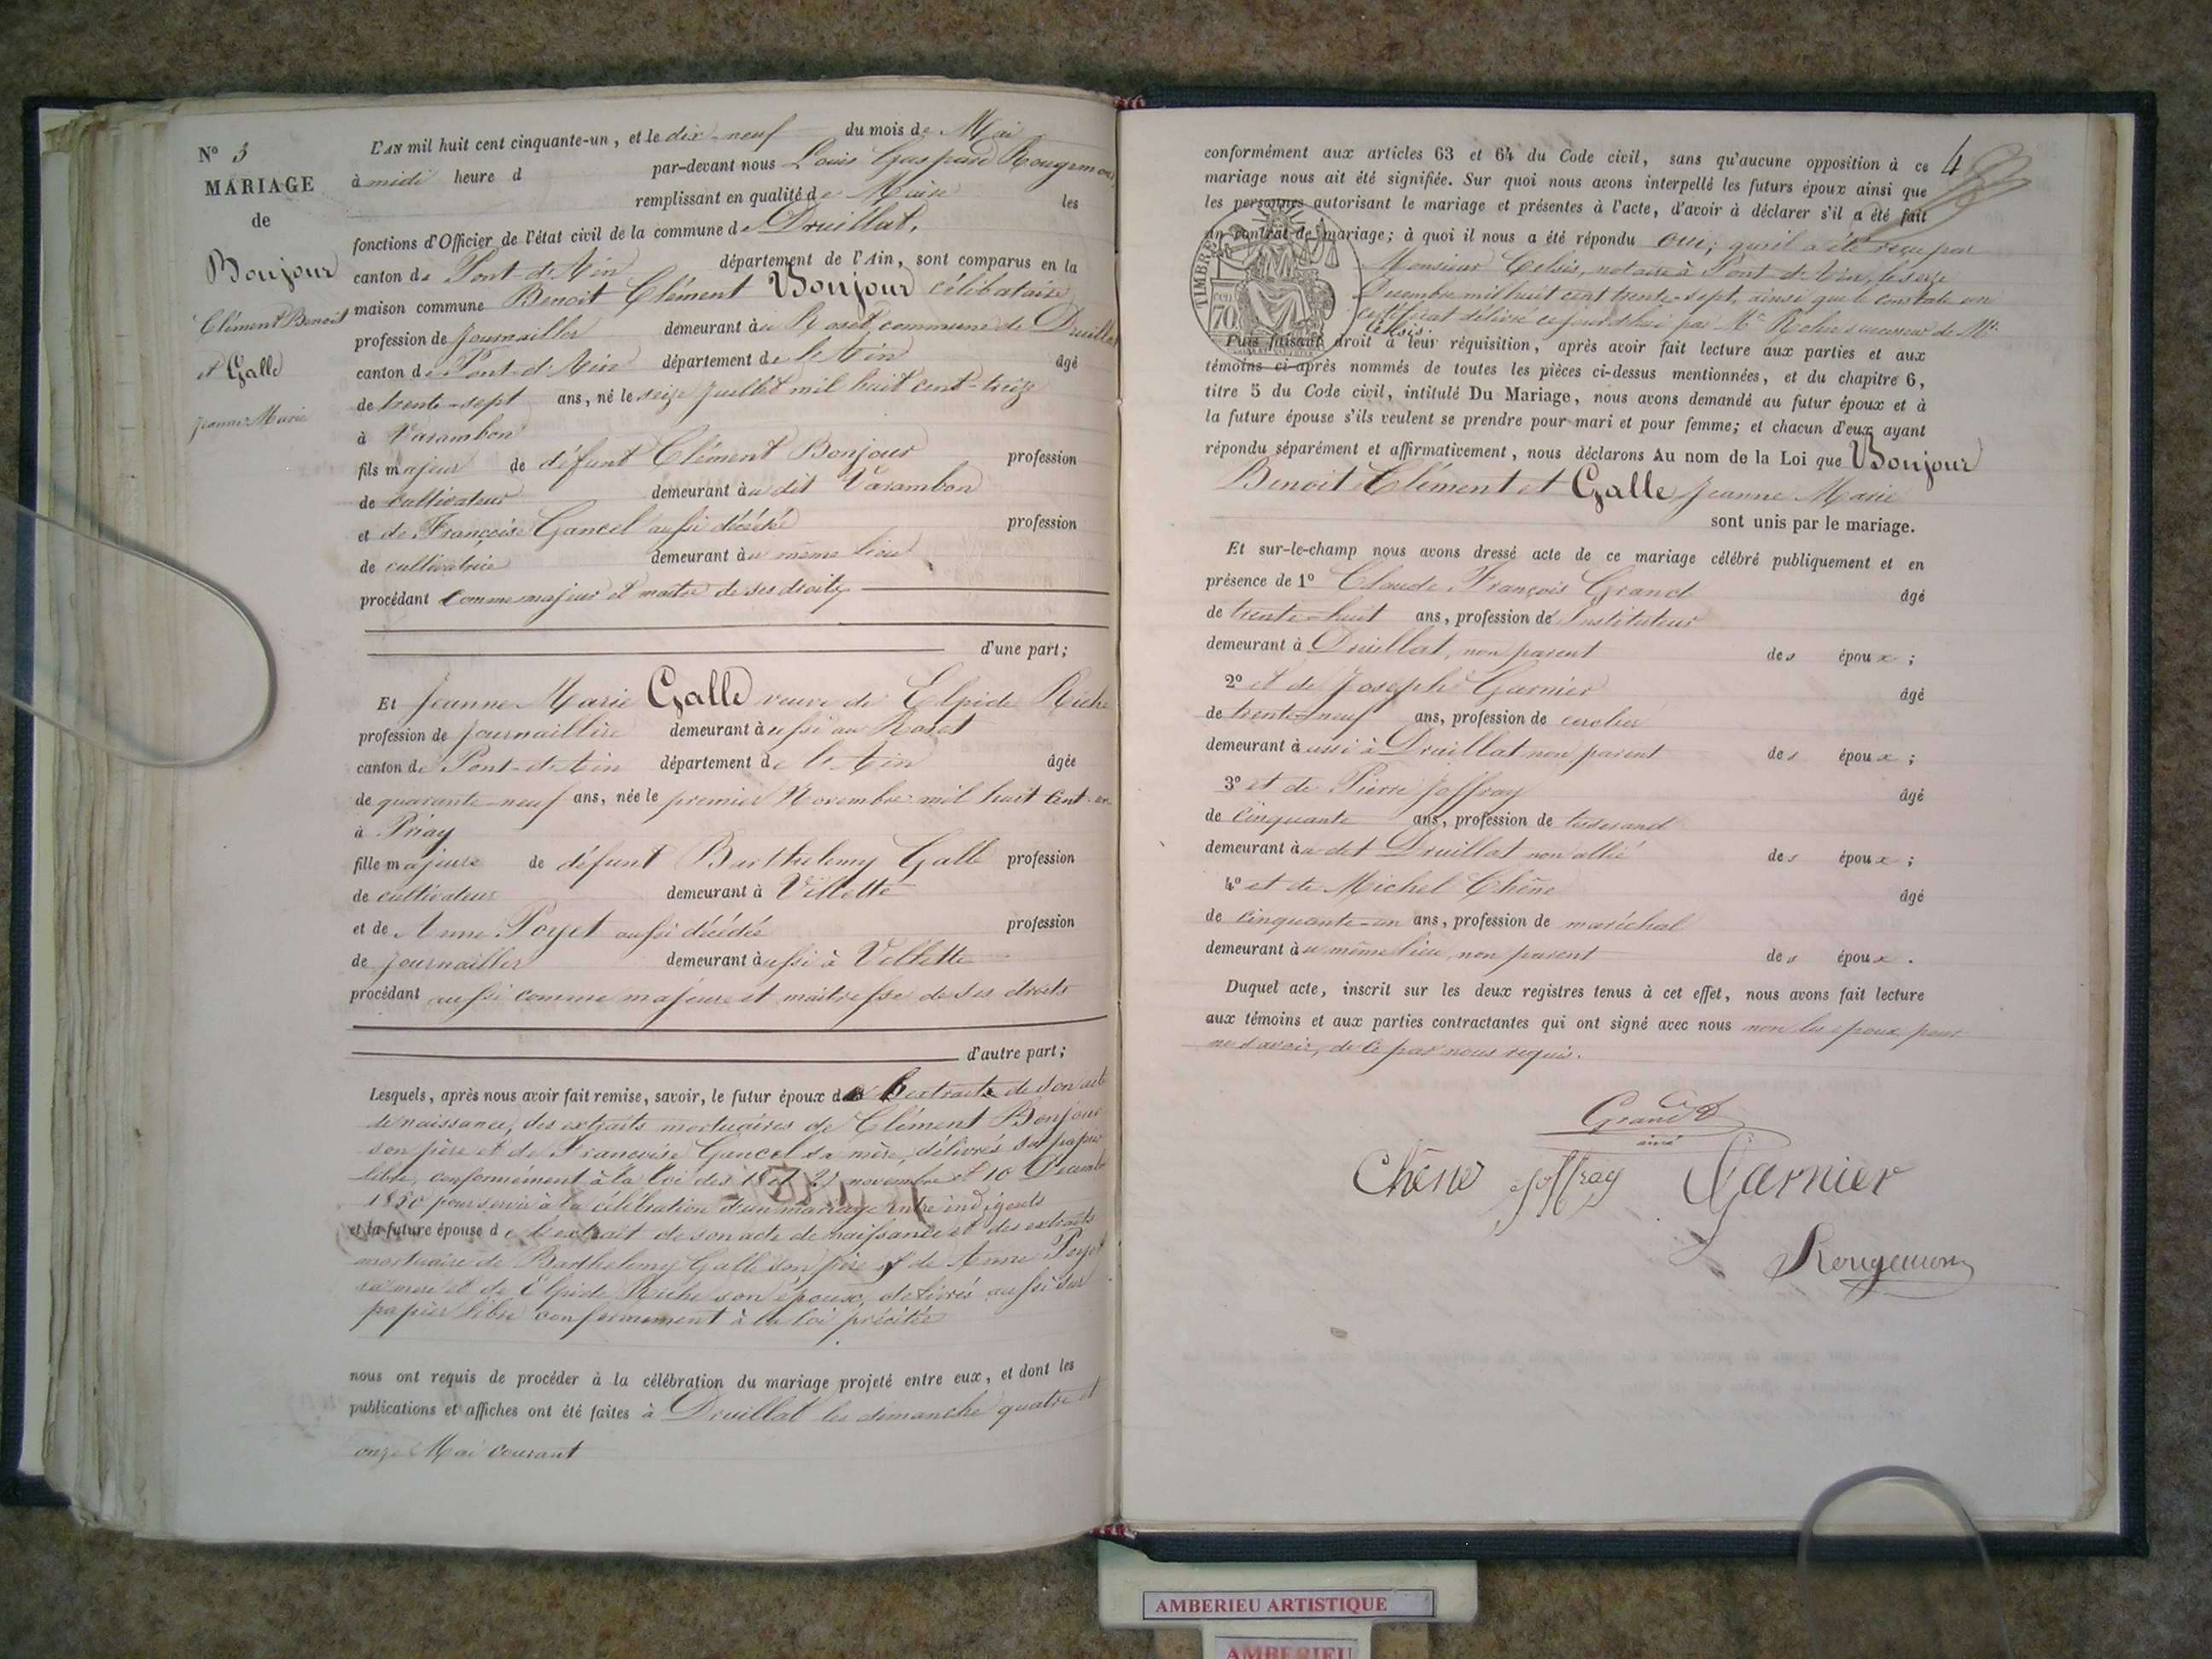 N° 3
MARIAGE
de
Bonjour
Clément Benoit
et Galle
Jeanne Marie
L'AN mil huit cent cinquante-un, et le dix-neuf du mois de Mai
à midi heure d par-devant nous Louis Gaspard Rougemon
remplissant en qualité de Maire les
fonctions d'Officier de l'état civil de la commune de Druillat,
canton de Pont-d'Ain département de l'Ain, sont comparus en la
maison commune Benoit Clément Bonjour célibataire
profession de journailler demeurant au Roset, commune de Druillat
canton de Pont-d'Ain département de l'Ain âgé
de trente-sept ans, né le seize juillet mil huit cent-treize
à Varambon
fils majeur de défunt Clément Bonjour profession
de cultivateur demeurant au dit Varambon
et de Françoise Gancel aussi décédée profession
de cultivatrice demeurant au même lieu
procédant comme majeur et maître de ses droits
d'une part;
Et Jeanne Marie Galle veuve de Elpide Riche
profession de journaillère demeurant aussi au Roset
canton de Pont-d'Ain département de l'Ain âgée
de quarante-neuf ans, née le premier Novembre mil huit cent-un
à Priay
fille majeure de défunt Barthelemy Galle profession
de cultivateur demeurant à Villette
et de Anne Poyet aussi décédée profession
de journailler demeurant aussi à Villette
procédant aussi comme majeure et maîtresse de ses droits
d'autre part;
Lesquels, après nous avoir fait remise, savoir, le futur époux de l'extrait de son acte
de naissance, des extraits mortuaires de Clément Bonjour
son père et de Françoise Gancel sa mère, délivrés sur papier
libre, conformément à la loi des 18 et 27 novembre et 10 Décembre
1850 pour servir à la célébration d'un mariage entre indigents
et la future épouse de l'extrait de son acte de naissance et des extraits
mortuaire de Barthelemy Galle son père et de Anne Poyet
sa mère et de Elpide Riche son époux, délivrés aussi sur
papier libre conformément à la loi précitée
nous ont requis de procéder à la célébration du mariage projeté entre eux, et dont les
publications et affiches ont été faites à Druillat les dimanche quatre et
onze Mai courant
4
conformément aux articles 63 et 64 du Code civil, sans qu'aucune opposition à ce
mariage nous ait été signifiée. Sur quoi nous avons interpellé les futurs époux ainsi que
les personnes autorisant le mariage et présentes à l'acte, d'avoir à déclarer s'il a été fait
un contrat de mariage; à quoi il nous a été répondu oui; qu'il a été reçu par
Monsieur Celsis, notaire à Pont-d'Ain, le seize
Décembre mil huit cent trente-sept, ainsi que le constate un
certificat délivré cejourd'hui par Me Rocher successeur de Mr
Celsis.
TIMBRE
70
Puis faisant droit à leur réquisition, après avoir fait lecture aux parties et aux
témoins ci-après nommés de toutes les pièces ci-dessus mentionnées, et du chapitre 6,
titre 5 du Code civil, intitulé Du Mariage, nous avons demandé au futur époux et à
la future épouse s'ils veulent se prendre pour mari et pour femme; et chacun d'eux ayant
répondu séparément et affirmativement, nous déclarons Au nom de la Loi que Bonjour
Benoit Clément et Galle Jeanne Marie
sont unis par le mariage.
Et sur-le-champ nous avons dressé acte de ce mariage célébré publiquement et en
présence de 1° Claude François Grand âgé
de trente-huit ans, profession de Instituteur
demeurant à Druillat, non parent des époux;
2° et de Joseph Garnier âgé
de trente-neuf ans, profession de
demeurant aussi à Druillat non parent des époux;
3° et de Pierre Joffray âgé
de cinquante ans, profession de tisserand
demeurant au dit Druillat non allié des époux;
4° et de Michel Chêne âgé
de cinquante-un ans, profession de maréchal
demeurant au même lieu, non parent des époux.
Duquel acte, inscrit sur les deux registres tenus à cet effet, nous avons fait lecture
aux témoins et aux parties contractantes qui ont signé avec nous non les époux pour
ne savoir, de ce par nous requis.
Grand
ainé
Chêne Joffray Garnier
Rougemon
AMBERIEU ARTISTIQUE
AMBERIEU